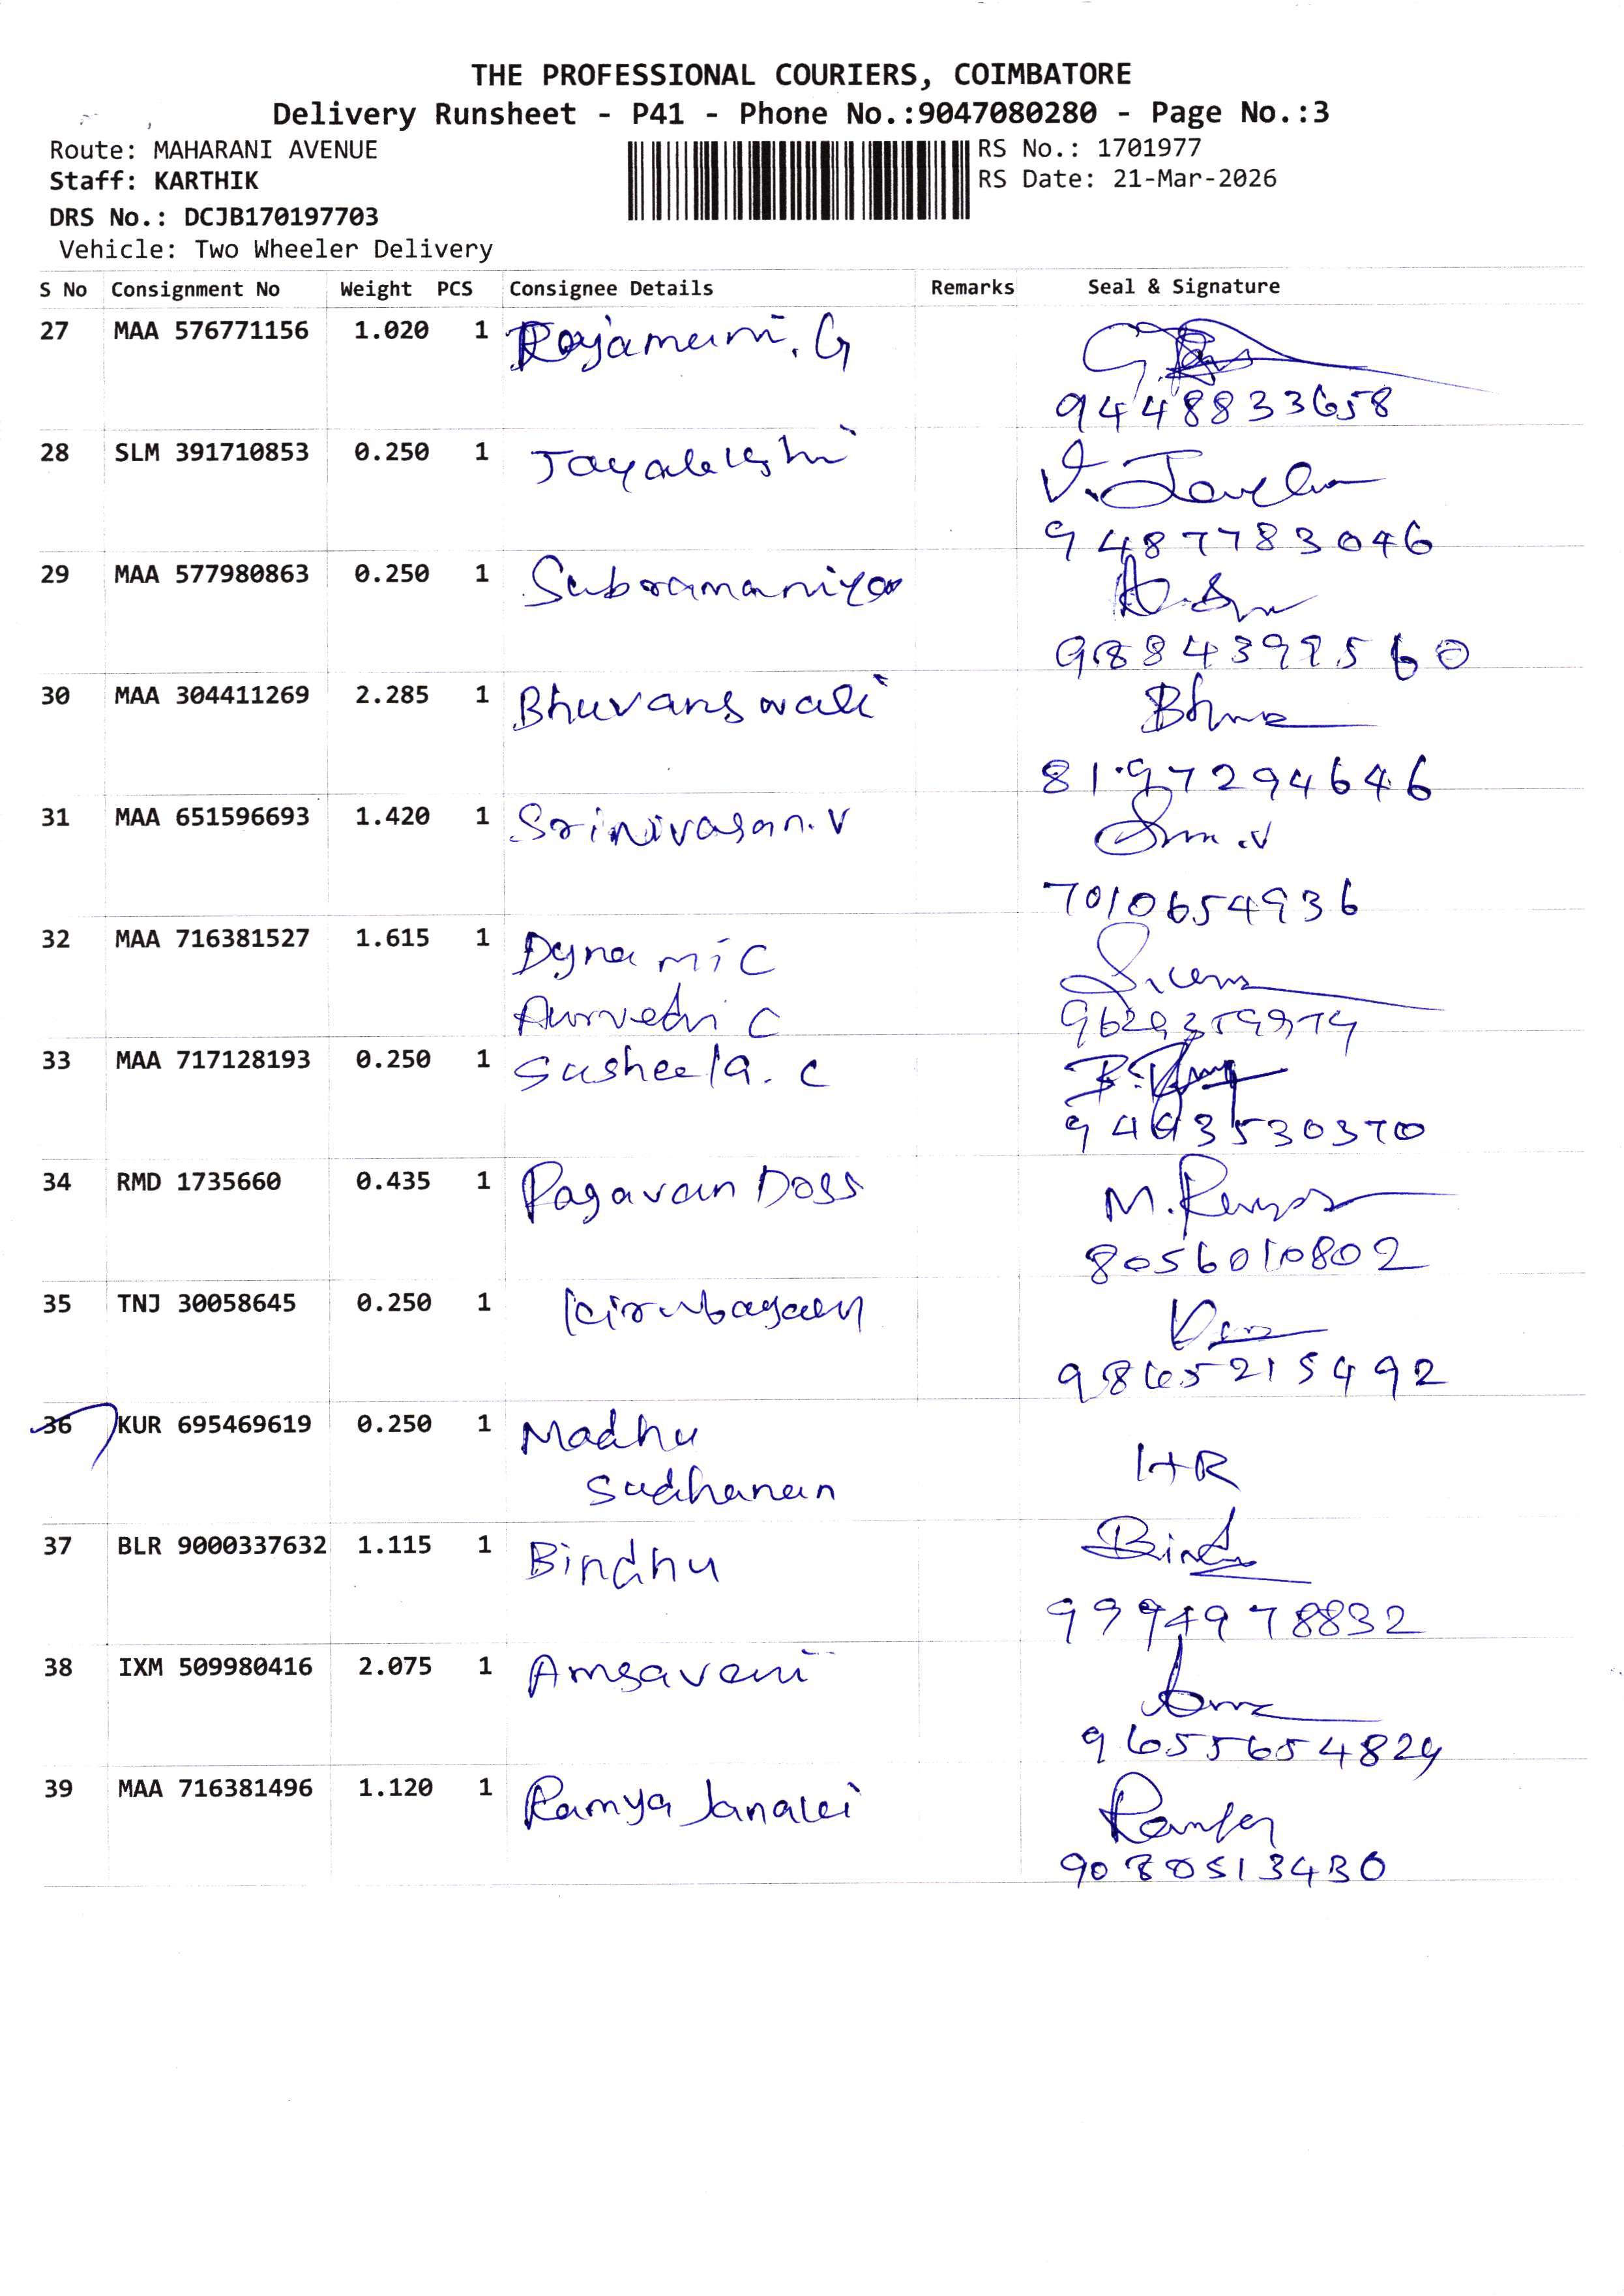 THE PROFESSIONAL COURIERS, COIMBATORE
Delivery Runsheet - P41 - Phone No.:9047080280 - Page No.:3
Route: MAHARANI AVENUE
RS No.: 1701977
Staff: KARTHIK
RS Date: 21-Mar-2026
DRS No.: DCJB170197703
Vehicle: Two Wheeler Delivery
S No Consignment No Weight PCS Consignee Details Remarks Seal & Signature
27 MAA 576771156 1.020 1 Rajamani. G
9448833658
28 SLM 391710853 0.250 1 Jayalakshi
9487783046
29 MAA 577980863 0.250 1 Subramaniya
9884399560
30 MAA 304411269 2.285 1 Bhuvanswali
Bhuva
8197294646
31 MAA 651596693 1.420 1 Srinivasan. V
7010654936
32 MAA 716381527 1.615 1 Dynamic
Aurvedic
9629359974
33 MAA 717128193 0.250 1 Susheela. C
9443530370
34 RMD 1735660 0.435 1 Pagavan Doss
8056010802
35 TNJ 30058645 0.250 1 Kirubagaen
9865215492
36 KUR 695469619 0.250 1 Madhu
Sudhanan
HR
37 BLR 9000337632 1.115 1 Bindhu
Bindu
9994978832
38 IXM 509980416 2.075 1 Amsaveni
9655654824
39 MAA 716381496 1.120 1 Ramya Janaki
Ramya
9080513430